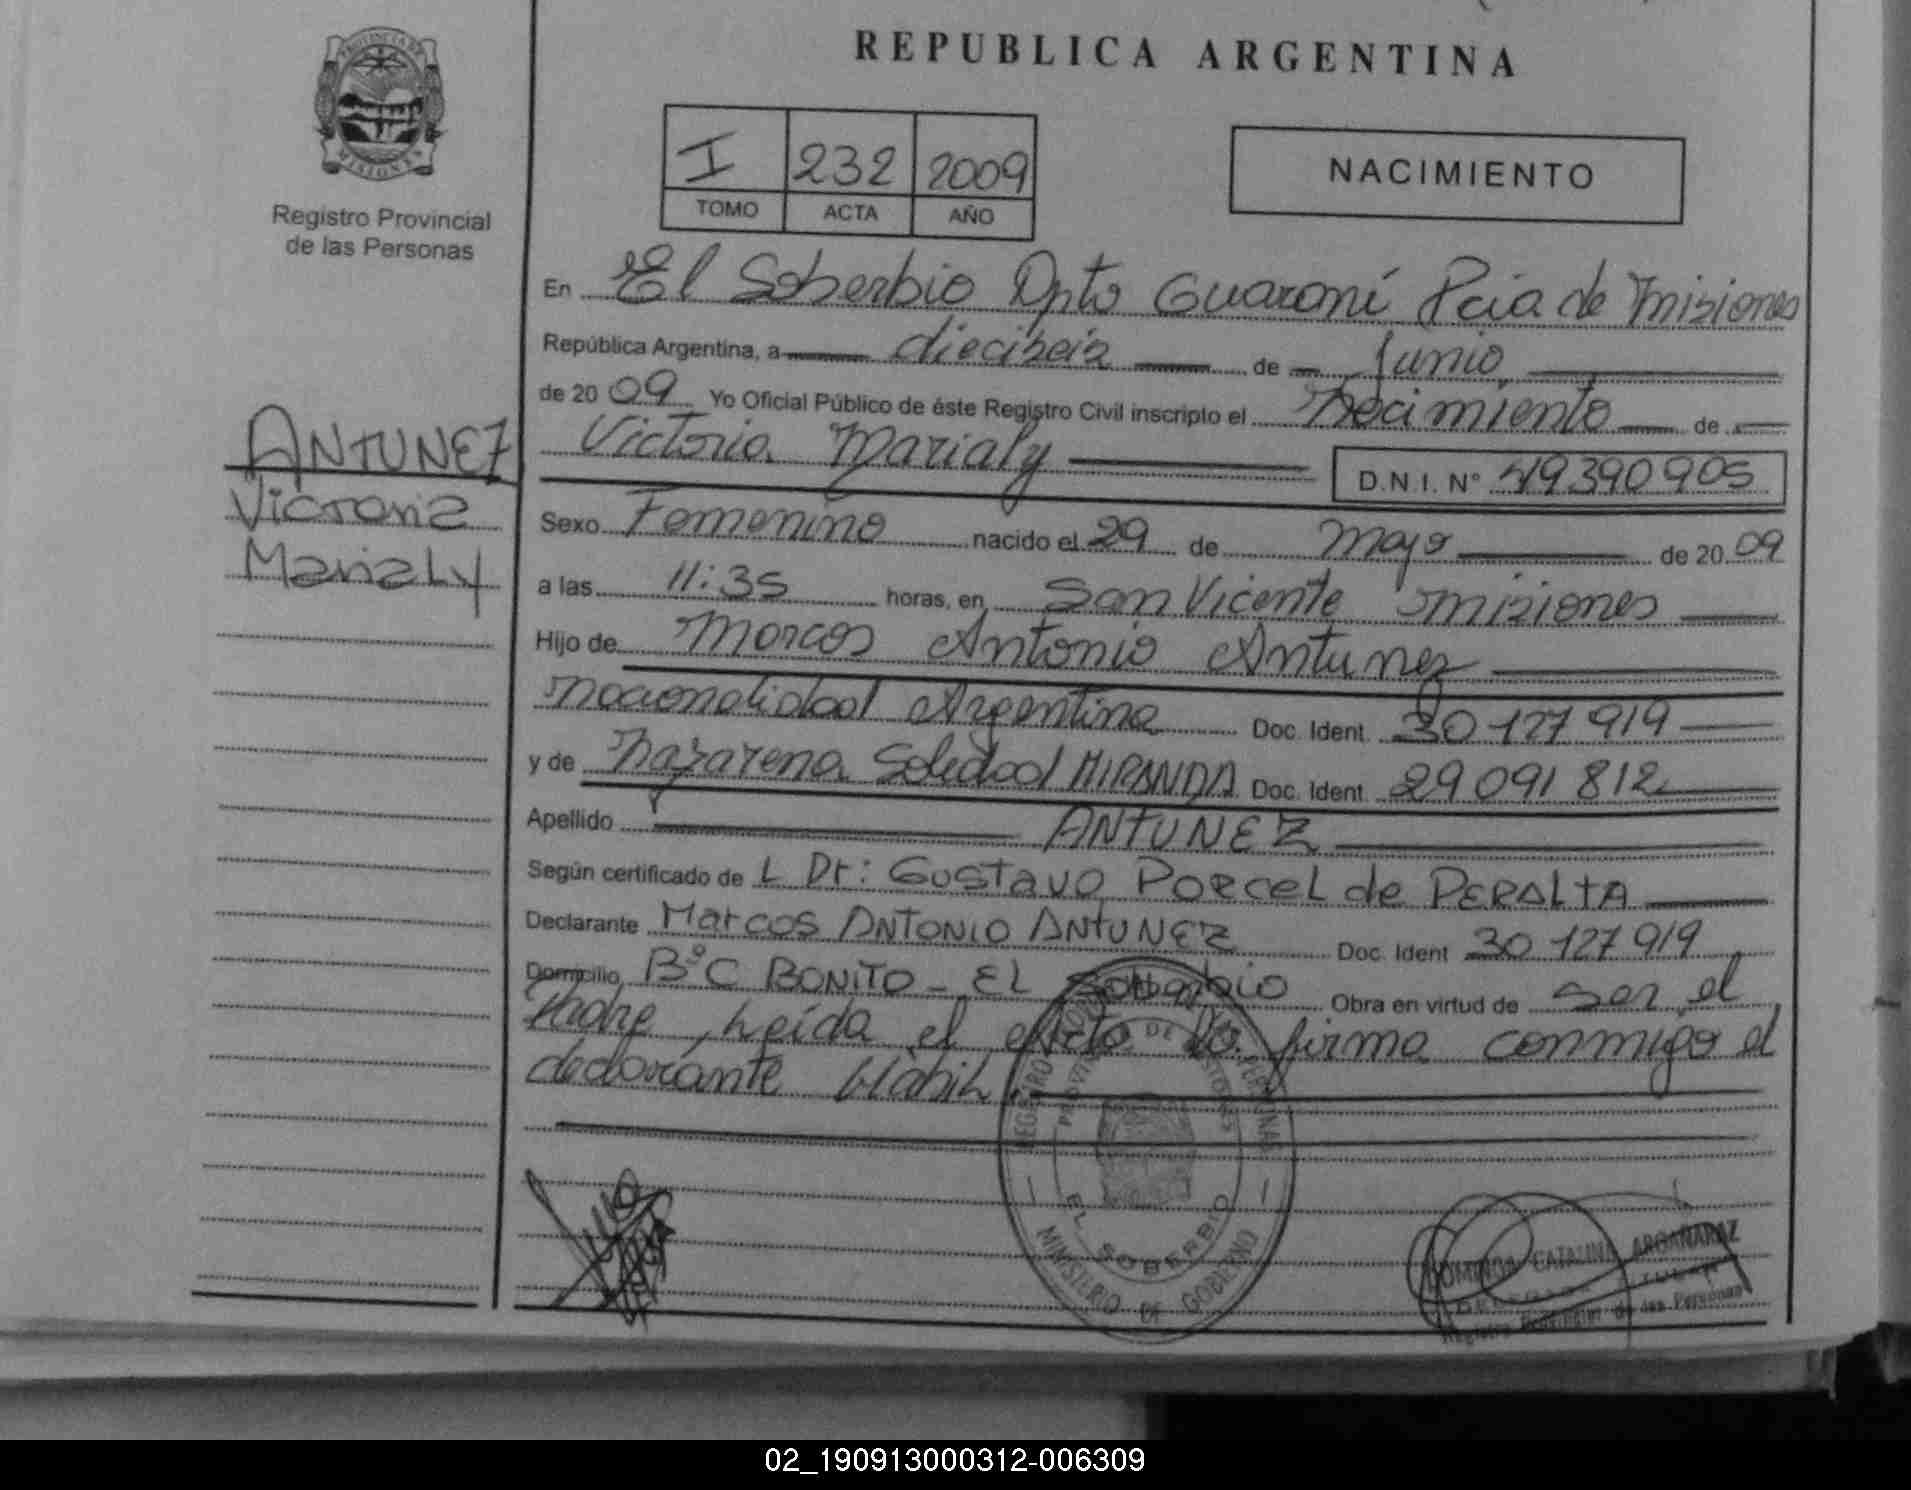 REPUBLICA ARGENTINA
PROVINCIA DE
MISIONES
Registro Provincial
de las Personas
I 232 2009
TOMO ACTA AÑO
NACIMIENTO
En El Soberbio Dpto Guaraní Pcia de Misiones
República Argentina, a dieciseis de Junio
de 20 09 Yo Oficial Público de éste Registro Civil inscripto el Nacimiento de
Victoria Marialy D.N.I. N° 49390905
ANTUNEZ
Victoria
Marialy
Sexo Femenino nacido el 29 de Mayo de 20 09
a las 11:35 horas, en San Vicente Misiones
Hijo de Marcos Antonio Antunez
nacionalidad Argentina Doc. Ident. 30 127 919
y de Nazarena Soledad MIRANDA Doc. Ident. 29 091 812
Apellido ANTUNEZ
Según certificado de L Dr: Gustavo Porcel de PERALTA
Declarante Marcos ANTONIO ANTUNEZ Doc. Ident 30 127 919
Domicilio B° C BONITO - EL Soberbio Obra en virtud de ser el
Padre, Leída el acta la firma conmigo el
declarante
EL SOBERBIO
MINISTERIO DE GOBIERNO
CATALINA ARGAÑARAZ
de las Personas
02_190913000312-006309